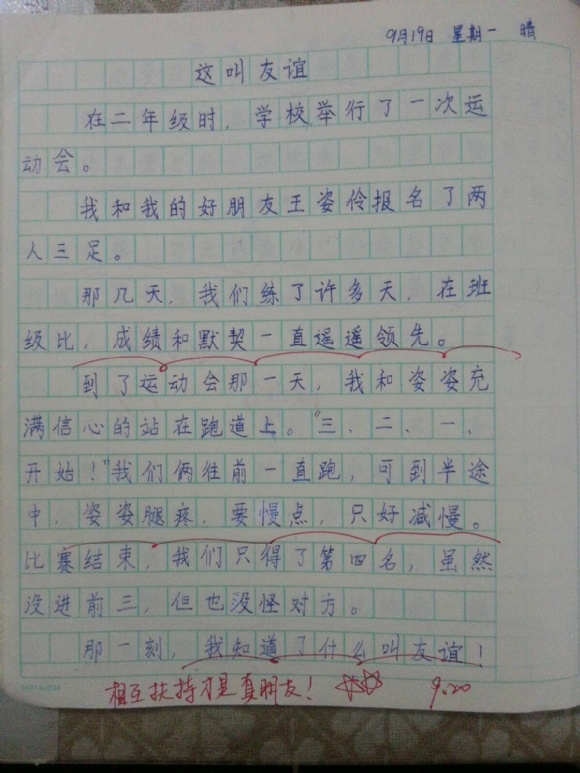 9月19日 星期一 晴
这叫友谊
在二年级时，学校举行了一次运
动会。
我和我的好朋友王姿伶报名了两
人三足。
那几天，我们练了许多天，在班
级比，成绩和默契一直遥遥领先。
到了运动会那一天，我和姿姿充
满信心的站在跑道上。“三、二、一、
开始！”我们俩往前一直跑，可到半途
中，姿姿腿疼，要慢点，只好减慢。
比赛结束，我们只得了第四名，虽然
没进前三，但也没怪对方。
那一刻，我知道了什么叫友谊！
相互扶持才是真朋友！ 9.20